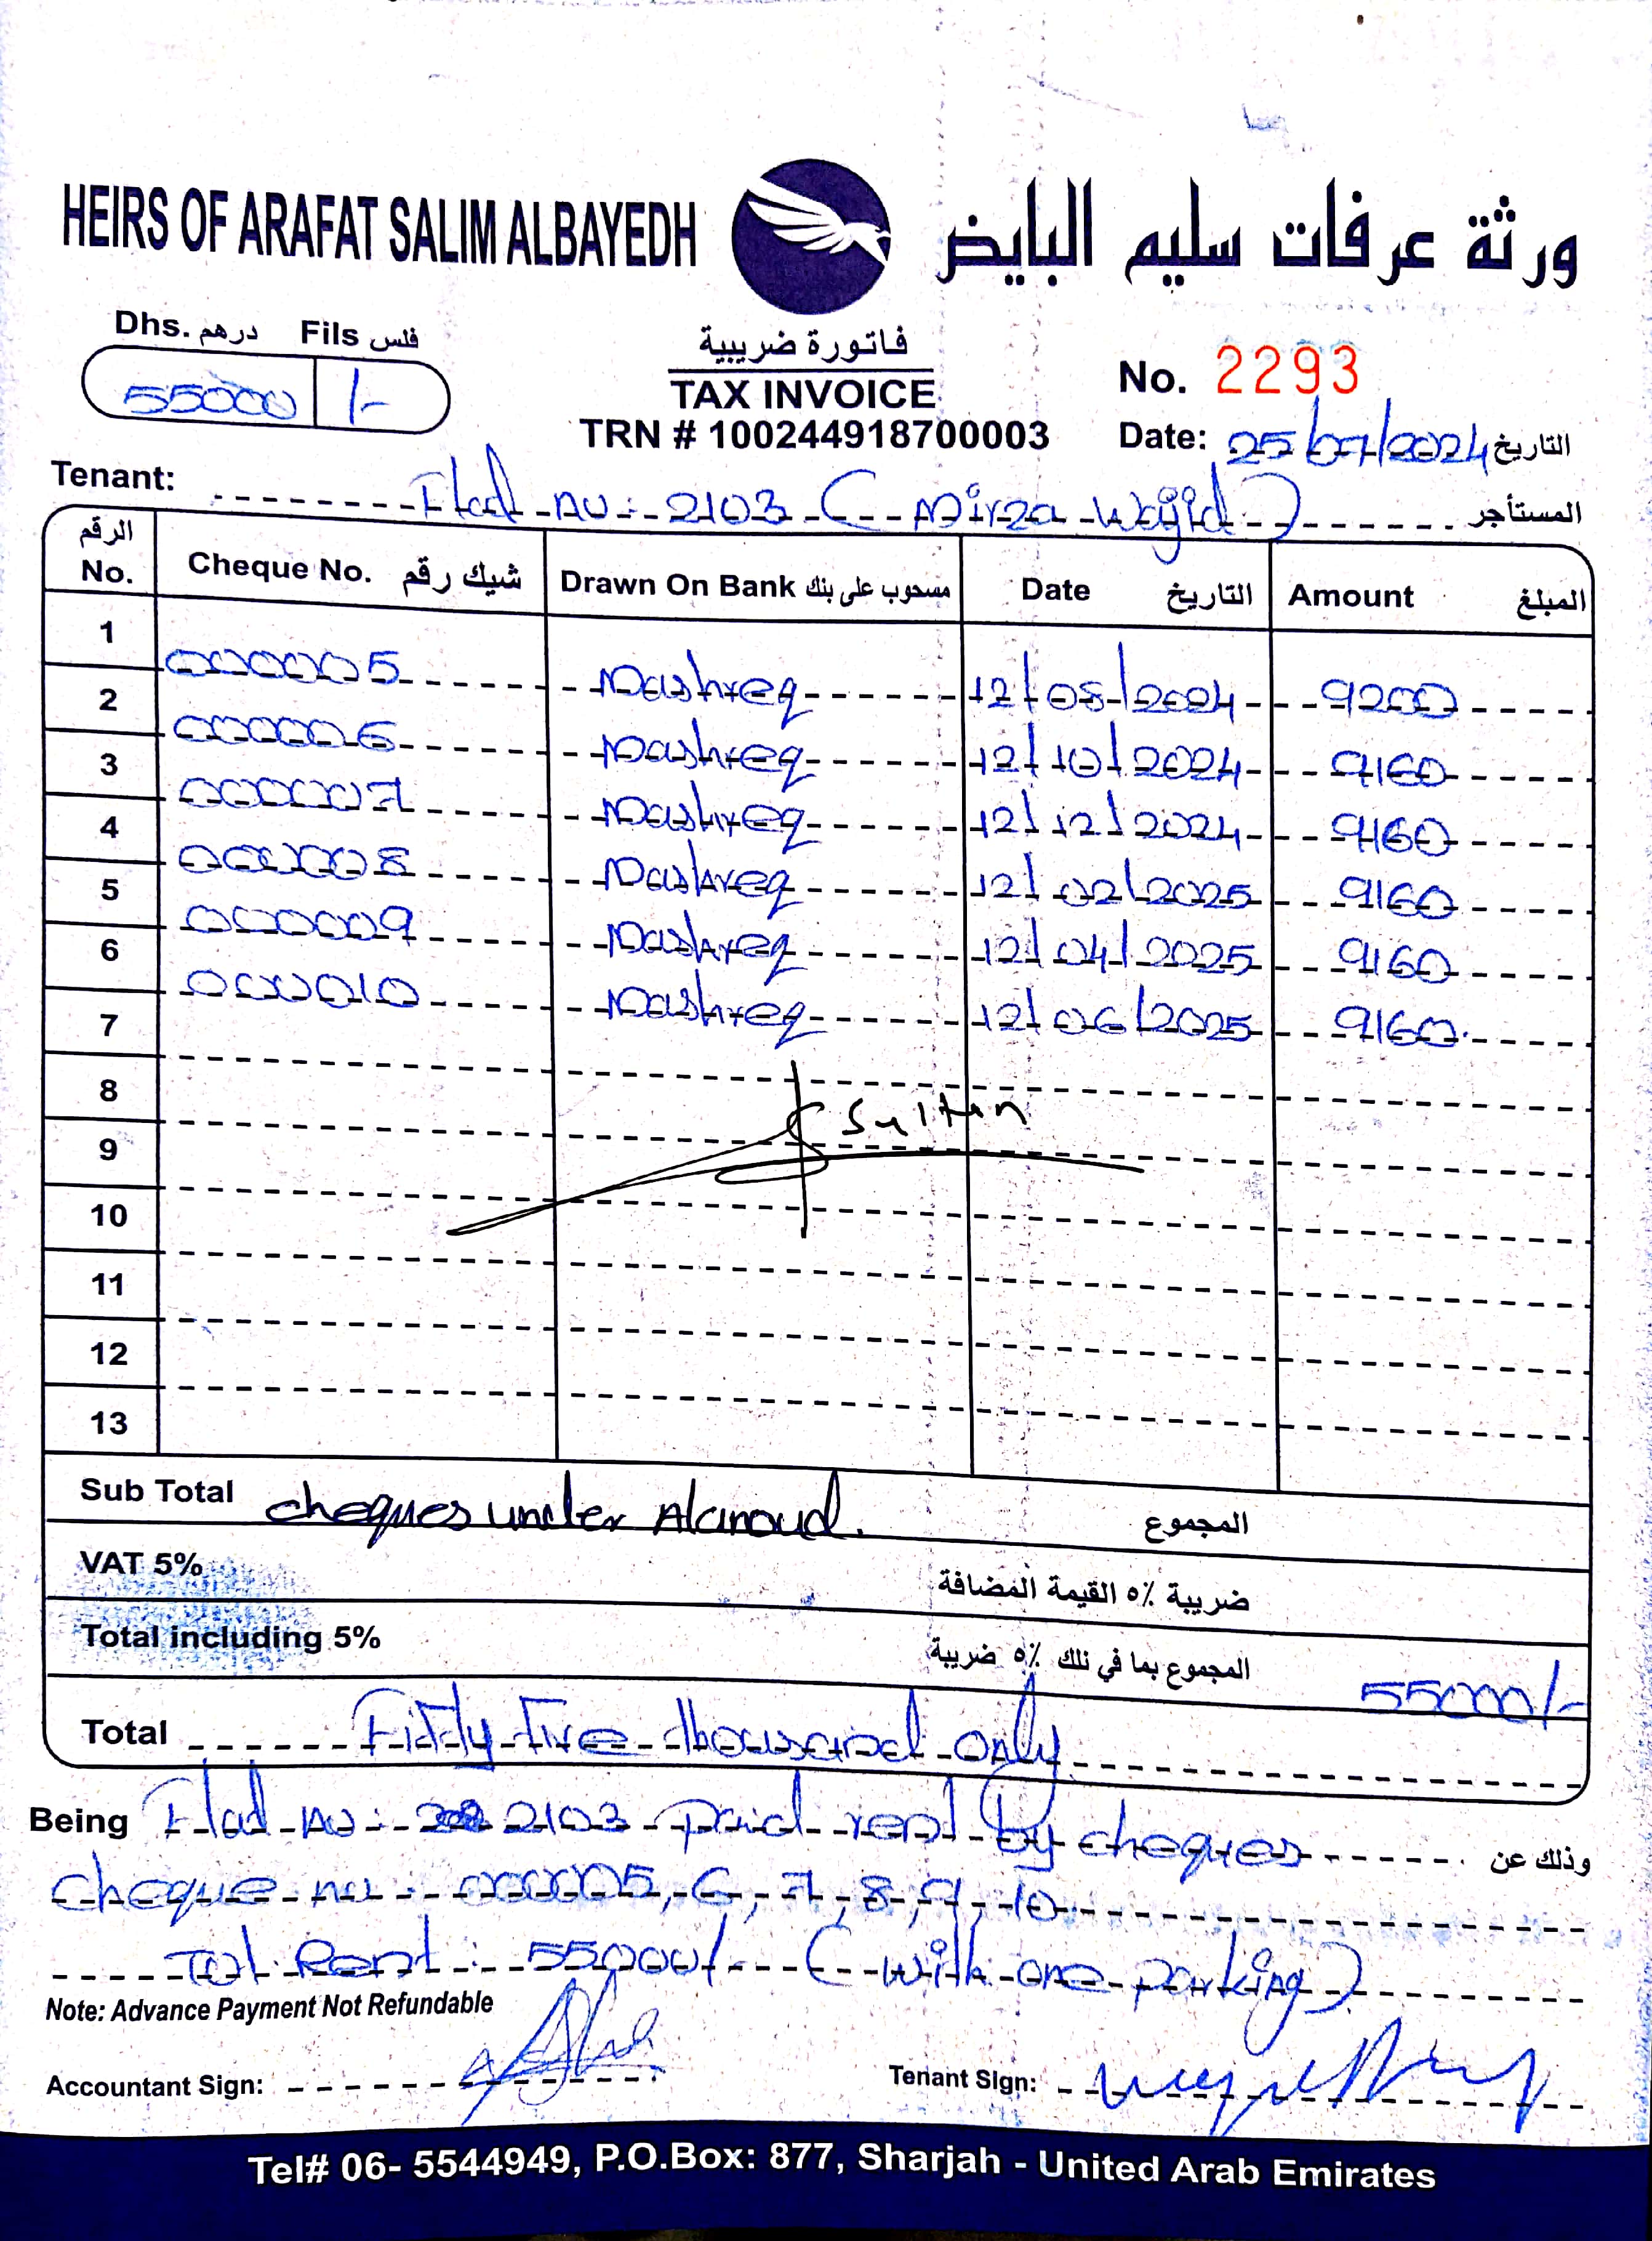 HEIRS OF ARAFAT SALIM ALBAYEDH ورثة عرفات سليم البايض
Dhs. درهم Fils فلس
55000 /-
فاتورة ضريبية
TAX INVOICE
TRN # 100244918700003
No. 2293
Date: 25/07/2024 التاريخ
Tenant: Flat no :- 2103 ( Mirza Wajid ) المستأجر
الرقم No. Cheque No. شيك رقم Drawn On Bank مسحوب على بنك Date التاريخ Amount المبلغ
1 000005 Mashreq 12/08/2024 9200
2 000006 Mashreq 12/10/2024 9160
3 000007 Mashreq 12/12/2024 9160
4 000008 Mashreq 12/02/2025 9160
5 000009 Mashreq 12/04/2025 9160
6 000010 Mashreq 12/06/2025 9160
7
8 Sultan
9
10
11
12
13
Sub Total cheques under Alanoud. المجموع
VAT 5% ضريبة ٥٪ القيمة المضافة
Total including 5% المجموع بما في ذلك ٥٪ ضريبة 55000/-
Total Fifty Five thousand only
Being Flat no :- 2103 paid rent by cheques وذلك عن
cheque no :- 000005, 6, 7, 8, 9, 10
Tot Rent :- 55000/- ( with one parking )
Note: Advance Payment Not Refundable
Accountant Sign: Tenant Sign:
Tel# 06- 5544949, P.O.Box: 877, Sharjah - United Arab Emirates